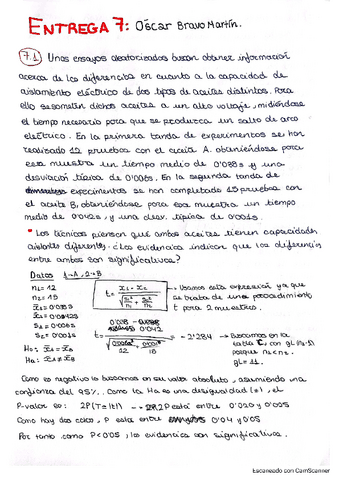 ENTREGA 7: Óscar Bravo Martín.
7.1) Unos ensayos aleatorizados buscan obtener información
acerca de las diferencias en cuanto a la capacidad de
aislamiento eléctrico de dos tipos de aceites distintos. Para
ello sesometen dichos aceites a un alto voltaje, midiéndose
el tiempo necesario para que se produzca un salto de arco
eléctrico. En la primera tanda de experimentos se han
realizado 12 pruebas con el aceite A. obteniéndose para
esa muestra un tiempo medio de y una
desviación típica de En la segunda tanda de
experimentos se han completado 15 pruebas con
el aceite B, obteniéndose para esa muestra un tiempo
medio de y una desv. típica de
• Los técnicos piensan que ambos aceites tienen capacidades
aislantes diferentes. ¿Las evidencias indican que las diferencias
entre ambos son significativas?
Datos 1→A, 2→B
n₁= 12
n₂= 15
t= x̄₁ - x̄₂
→ Usamos esta expresión ya que
se trata de una procedimiento
t para 2 muestras.
H₀: x̄₁ = x̄₂
Ha: x̄₁ ≠ x̄₂
→ Buscamos en la
tabla C con
porque n₁<n₂.
gL= 11.
Como es negativo lo buscamos en su valor absoluto, asumiendo una
confianza del 95%. Como la Ha es una desigualdad (≠), el
P-valor es: 2P(T≥|t|) → P está entre 0'020 y 0'025
Como hay dos colas, P está entre 0'04 y 0'05
Por tanto como P<0'05, las evidencias son significativas.
Escaneado con CamScanner